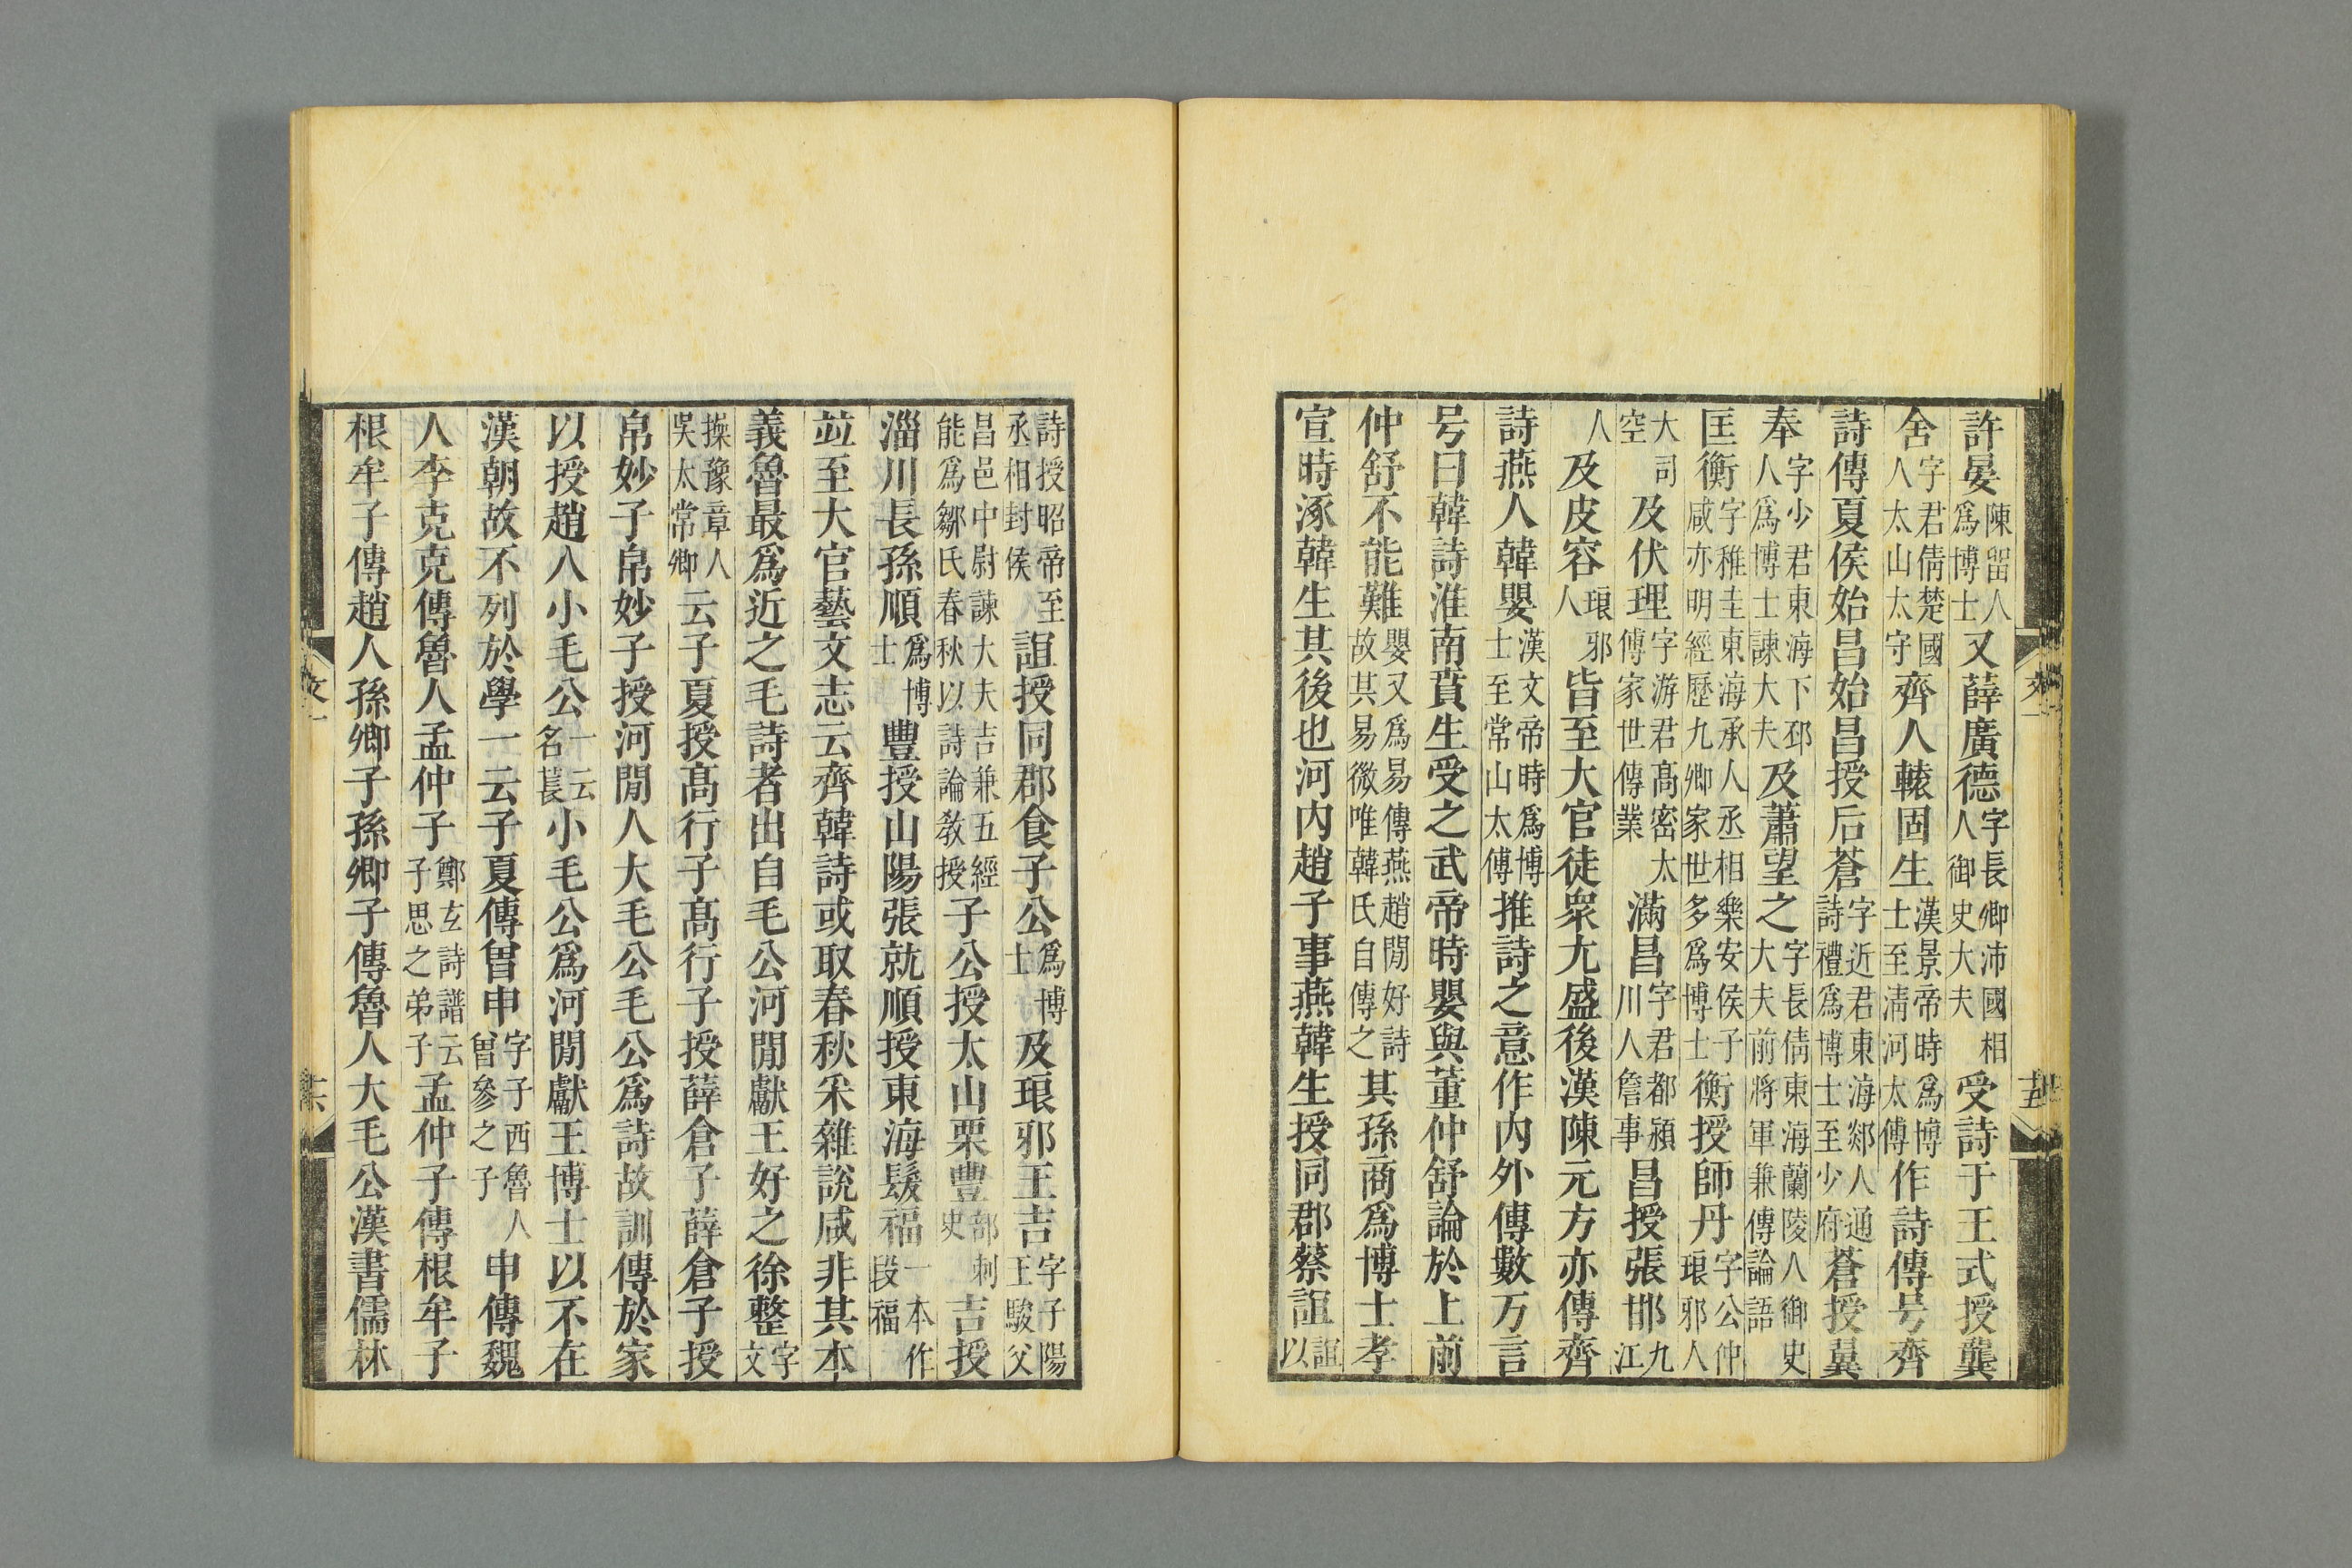 許晏陳留人爲博士又薛廣德字長卿沛國相人御史大夫受詩于王式授龔
舍字君倩楚國人太山太守齊人轅固生漢景帝時爲博士至清河太傅作詩傳号齊
詩傳夏侯始昌始昌授后蒼字近君東海郯人通詩禮爲博士至少府蒼授翼
奉字少君東海下邳人爲博士諫大夫及蕭望之字長倩東海蘭陵人御史大夫前將軍兼傳論語
匡衡字稚圭東海承人丞相樂安侯子咸亦明經歷九卿家世多爲博士衡授師丹字公仲琅邪人
大司空及伏理字游君高密太傅家世傳業滿昌字君都潁川人詹事昌授張邯九江
人及皮容琅邪人皆至大官徒衆尤盛後漢陳元方亦傳齊
詩燕人韓嬰漢文帝時爲博士至常山太傅推詩之意作内外傳數万言
号曰韓詩淮南賁生受之武帝時嬰與董仲舒論於上前
仲舒不能難嬰又爲易傳燕趙閒好詩故其易微唯韓氏自傳之其孫商爲博士孝
宣時涿韓生其後也河内趙子事燕韓生授同郡蔡誼誼以
詩授昭帝至丞相封侯誼授同郡食子公爲博士及琅邪王吉字子陽王駿父
昌邑中尉諫大夫吉兼五經能爲鄒氏春秋以詩論教授子公授太山栗豐部刺史吉授
淄川長孫順爲博士豐授山陽張就順授東海髮福一本作段福
並至大官藝文志云齊韓詩或取春秋采雜説咸非其本
義魯最爲近之毛詩者出自毛公河閒獻王好之徐整字文
操豫章人吳太常卿云子夏授高行子高行子授薛倉子薛倉子授
帛妙子帛妙子授河閒人大毛公毛公爲詩故訓傳於家
以授趙人小毛公一云名萇小毛公爲河閒獻王博士以不在
漢朝故不列於學一云子夏傳曾申字子西魯人曾參之子申傳魏
人李克克傳魯人孟仲子鄭玄詩譜云子思之弟子孟仲子傳根牟子
根牟子傳趙人孫卿子孫卿子傳魯人大毛公漢書儒林